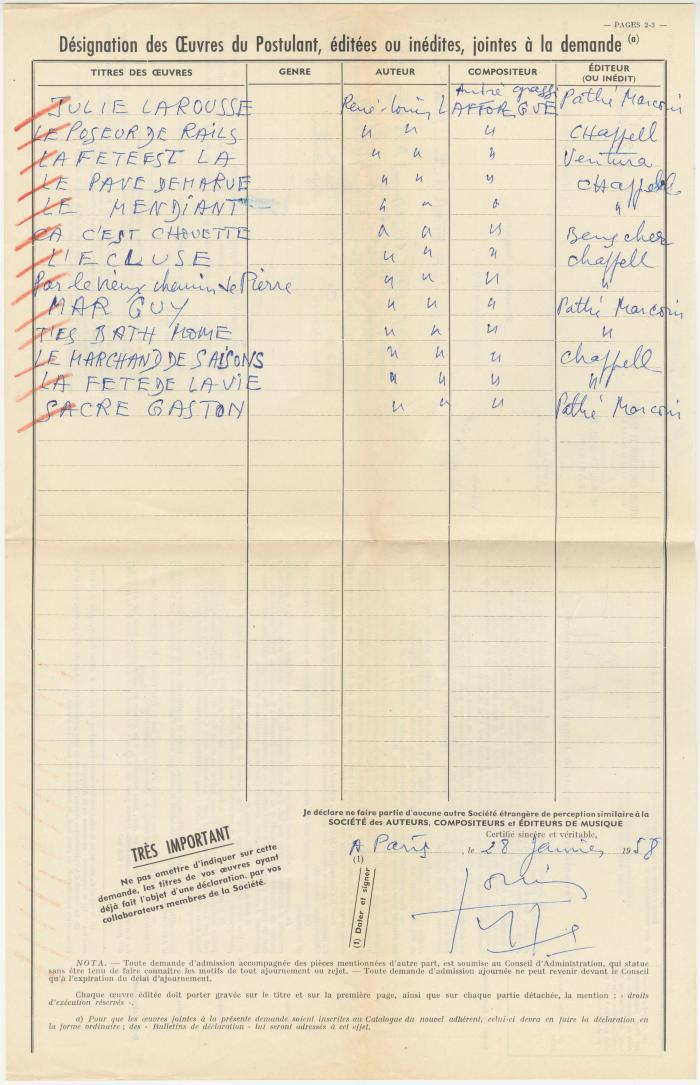 — PAGES 2-3 —
Désignation des Œuvres du Postulant, éditées ou inédites, jointes à la demande (a)
TITRES DES ŒUVRES GENRE AUTEUR COMPOSITEUR ÉDITEUR (OU INÉDIT)
JULIE LAROUSSE René-Louis LAFFORGUE André grassi Pathé Marconi
LE POSEUR DE RAILS " " " CHappell
LA FETE EST LA " " " Ventura
LE PAVE DE MA RUE " " " CHappell
LE MENDIANT " " " "
CA C'EST CHOUETTE " " "
L'ECLUSE " " " chappell
Par le vieux chemin de Pierre " " " "
MAR GUY " " " Pathé Marconi
T'ES BATH MOME " " " "
LE MARCHAND DE SAISONS " " " chappell
LA FETE DE LA VIE " " " "
SACRE GASTON " " " Pathé Marconi
Je déclare ne faire partie d'aucune autre Société étrangère de perception similaire à la
SOCIÉTÉ des AUTEURS, COMPOSITEURS et ÉDITEURS DE MUSIQUE
Certifié sincère et véritable,
A Paris, le 28 Janvier 1958
(1)
(1) Dater et signer
TRÈS IMPORTANT
Ne pas omettre d'indiquer sur cette
demande, les titres de vos œuvres ayant
déjà fait l'objet d'une déclaration, par vos
collaborateurs membres de la Société.
NOTA. — Toute demande d'admission accompagnée des pièces mentionnées d'autre part, est soumise au Conseil d'Administration, qui statue
sans être tenu de faire connaître les motifs de tout ajournement ou rejet. — Toute demande d'admission ajournée ne peut revenir devant le Conseil
qu'à l'expiration du délai d'ajournement.
Chaque œuvre éditée doit porter gravée sur le titre et sur la première page, ainsi que sur chaque partie détachée, la mention : « droits
d'exécution réservés ».
a) Pour que les œuvres jointes à la présente demande soient inscrites au Catalogue du nouvel adhérent, celui-ci devra en faire la déclaration en
la forme ordinaire ; des « Bulletins de déclaration » lui seront adressés à cet effet.